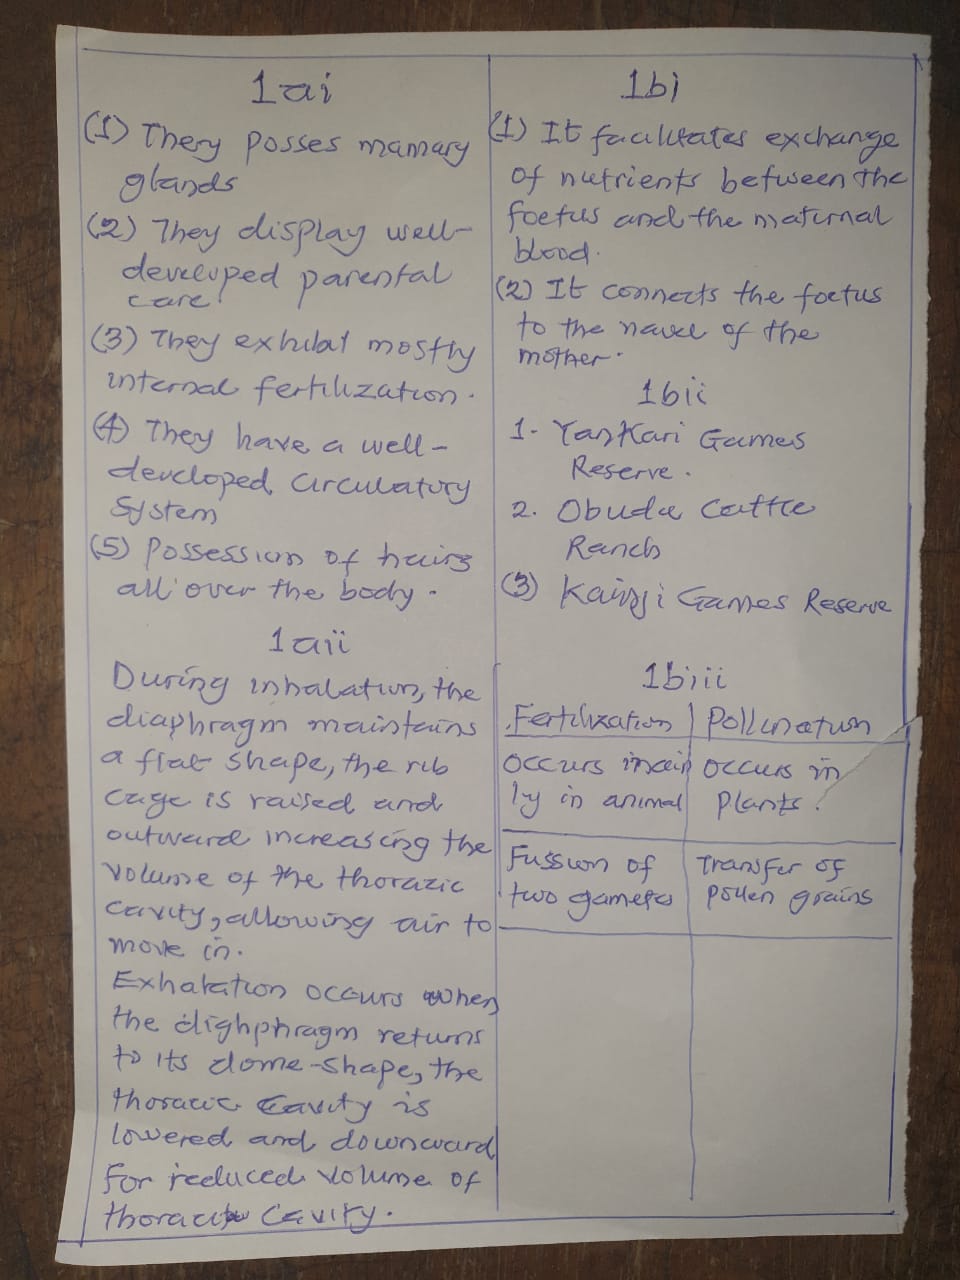 1ai
(1) Thery posses mamary
glands
(2) They display well-
developed parental
care
(3) They exhibit mostly
internal fertilization.
(4) They have a well-
developed circulatory
System
(5) Possession of hairs
all over the body.
1aii
During inhalation, the
diaphragm maintains
a flat shape, the rib
cage is raised and
outward increasing the
volume of the thorazic
cavity, allowing air to
move in.
Exhalation occurs when
the dighphragm returns
to its dome-shape, the
thoracic cavity is
lowered and downward
for reduced volume of
thoracic cavity.
1bi
(1) It facilitates exchange
of nutrients between the
foetus and the maternal
blood.
(2) It connects the foetus
to the navel of the
mother.
1bii
1. Yankari Games
Reserve.
2. Obudu Cattle
Ranch
(3) Kainji Games Reserve
1biii
Fertilization Pollination
occurs main occurs in
ly in animal plants.
Fussion of Transfer of
two gametes pollen grains